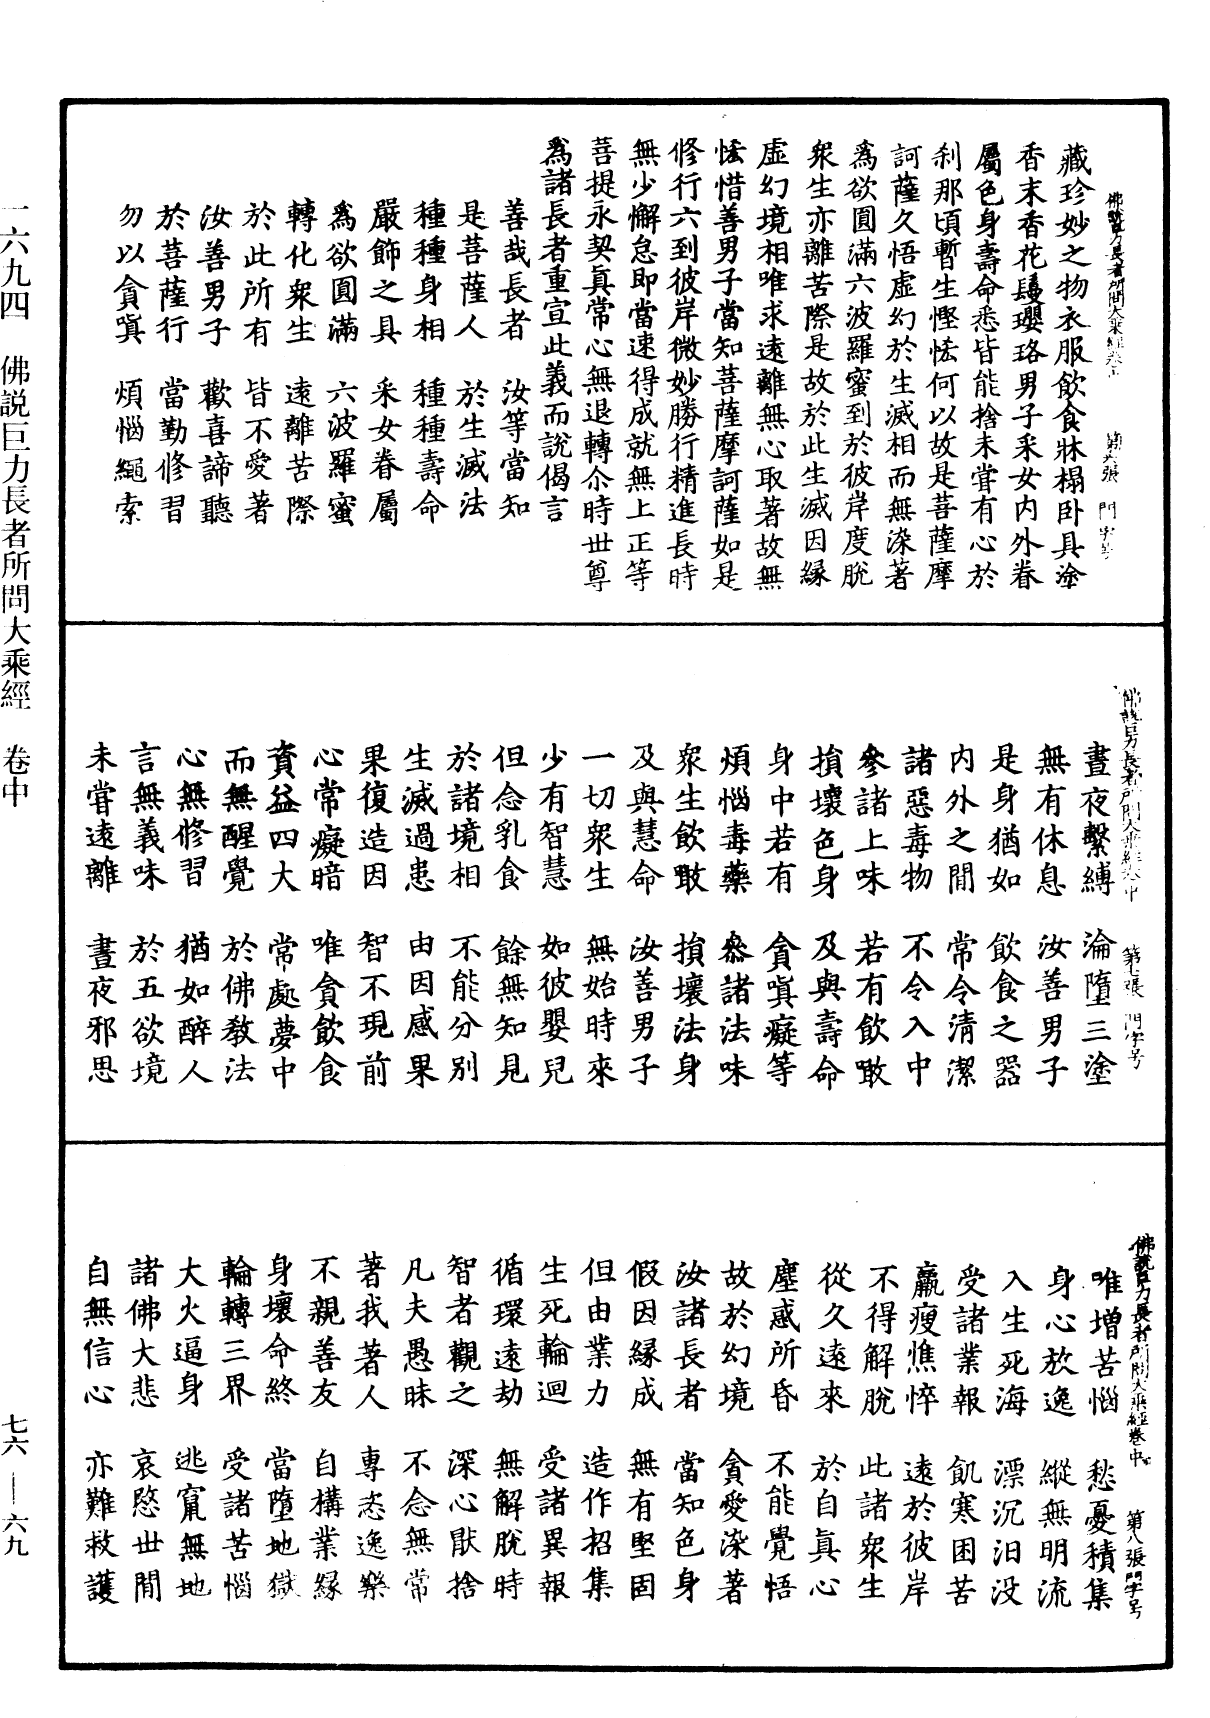 佛説巨力長者所問大乘經卷中 第六張 門字号
藏珍妙之物衣服飲食牀榻卧具塗
香末香花鬘瓔珞男子采女内外眷
屬色身壽命悉皆能捨未甞有心於
刹那頃暫生慳悋何以故是菩薩摩
訶薩久悟虚幻於生滅相而無染著
爲欲圓滿六波羅蜜到於彼岸度脫
衆生亦離苦際是故於此生滅因緣
虚幻境相唯求遠離無心取著故無
悋惜善男子當知菩薩摩訶薩如是
修行六到彼岸微妙勝行精進長時
無少懈怠即當速得成就無上正等
菩提永契真常心無退轉尒時世尊
爲諸長者重宣此義而說偈言
善哉長者 汝等當知
是菩薩人 於生滅法
種種身相 種種壽命
嚴飾之具 采女眷屬
爲欲圓滿 六波羅蜜
轉化衆生 遠離苦際
於此所有 皆不愛著
汝善男子 歡喜諦聽
於菩薩行 當勤修習
勿以貪嗔 煩惱繩索
佛説巨力長者所問大乘經卷中 第七張 門字号
晝夜繫縛 淪墮三塗
無有休息 汝善男子
是身猶如 飲食之器
内外之間 常令清潔
諸惡毒物 不令入中
叅諸上味 若有飲噉
損壞色身 及與壽命
身中若有 貪嗔癡等
煩惱毒藥 叅諸法味
衆生飲噉 損壞法身
及與慧命 汝善男子
一切衆生 無始時來
少有智慧 如彼嬰兒
但念乳食 餘無知見
於諸境相 不能分別
生滅過患 由因感果
果復造因 智不現前
心常癡暗 唯貪飲食
資益四大 常處夢中
而無醒覺 於佛教法
心無修習 猶如醉人
言無義味 於五欲境
未甞遠離 晝夜邪思
佛説巨力長者所問大乘經卷中 第八張 門字号
唯增苦惱 愁憂積集
身心放逸 縱無明流
入生死海 漂沉汩没
受諸業報 飢寒困苦
羸瘦憔悴 遠於彼岸
不得解脫 此諸衆生
從久遠來 於自真心
塵惑所昏 不能覺悟
故於幻境 貪愛染著
汝諸長者 當知色身
假因緣成 無有堅固
但由業力 造作招集
生死輪迴 受諸異報
循環遠劫 無解脫時
智者觀之 深心猒捨
凡夫愚昧 不念無常
著我著人 專恣逸樂
不親善友 自構業緣
身壞命終 當墮地獄
輪轉三界 受諸苦惱
大火逼身 逃竄無地
諸佛大悲 哀愍世間
自無信心 亦難救護
一六九四 佛説巨力長者所問大乘經 卷中
七六——六九